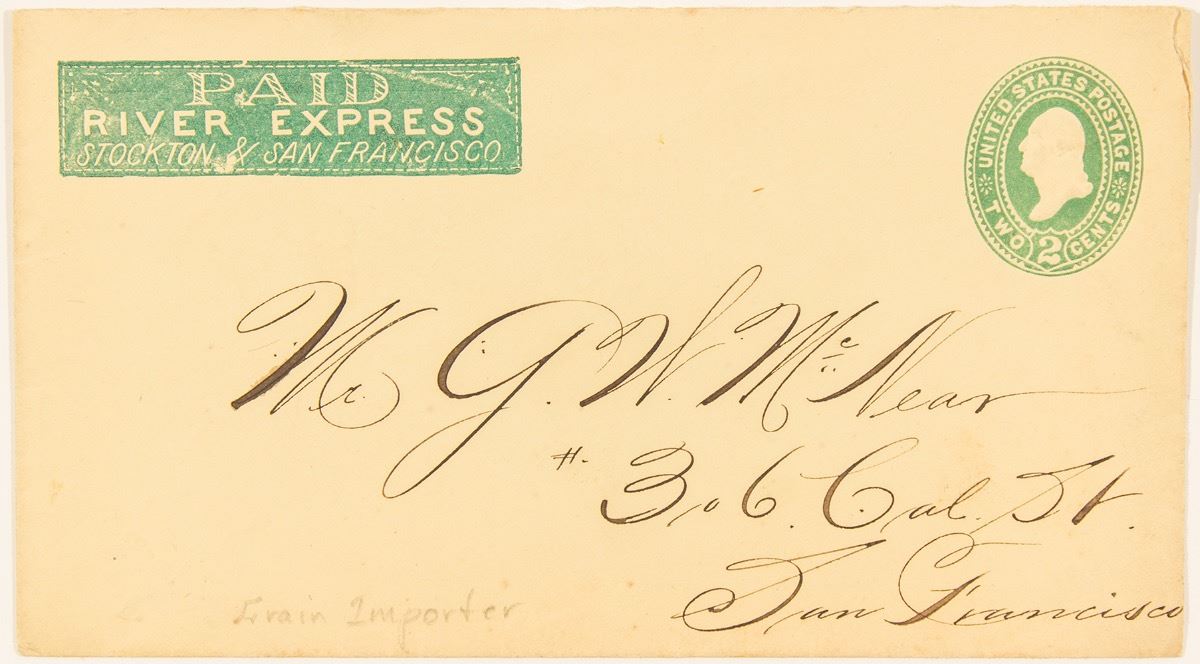 PAID
RIVER EXPRESS
STOCKTON & SAN FRANCISCO
UNITED STATES POSTAGE
TWO 2 CENTS
Mr. G. W. Mc Near
#. 306. Cal. St.
San Francisco
Grain Importer